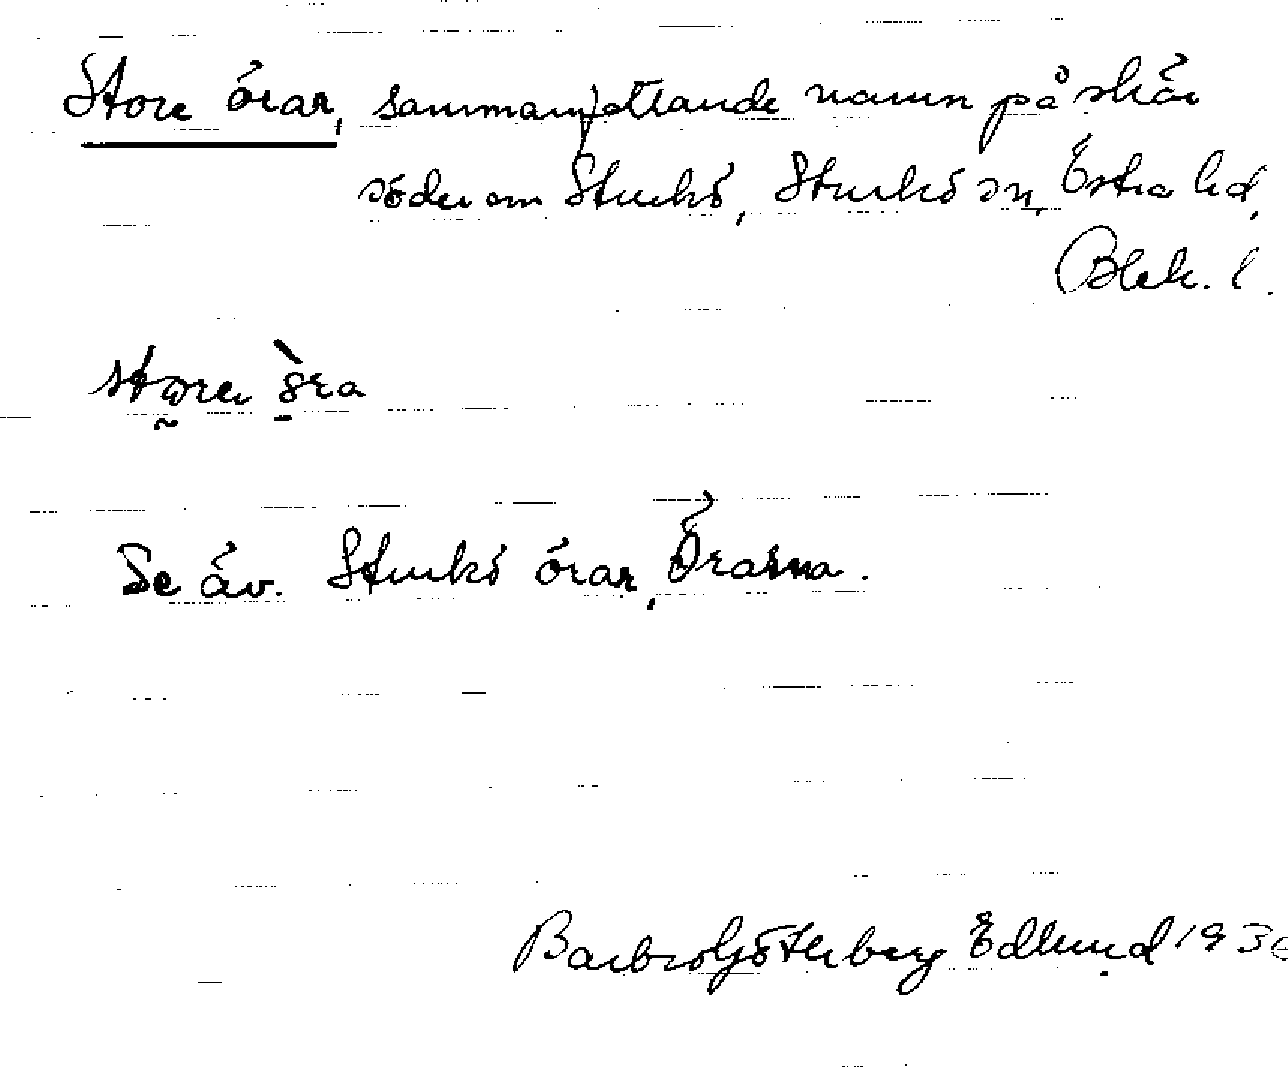 Store örar, sammanfattande namn på skär
söder om Sturkö, Sturkö sn, Östra hd,
Blek. l.
Se äv. Sturkö örar, Örarna.
Barbro Göterberg Edlund 193